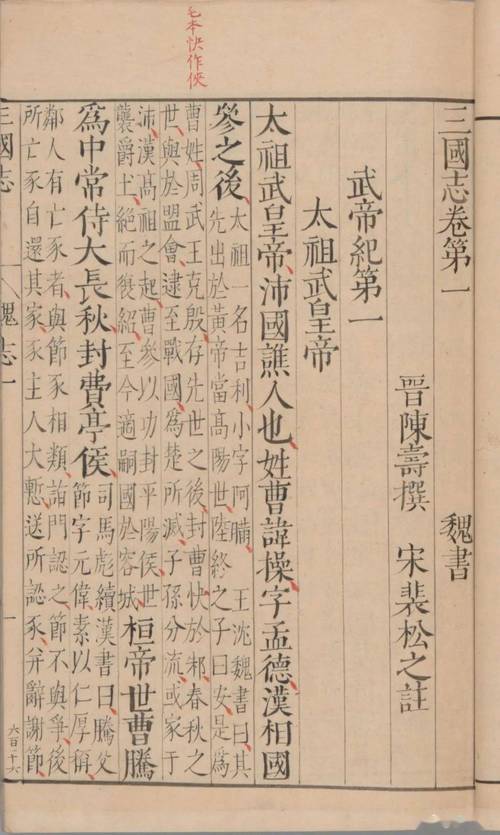 毛本快作俠
三國志卷第一 魏書
晉陳壽撰 宋裴松之註
武帝紀第一
太祖武皇帝
太祖武皇帝沛國譙人也姓曹諱操字孟德漢相國
參之後
太祖一名吉利小字阿瞞 王沈魏書曰其
先出於黃帝當高陽世陸終之子曰安是爲
曹姓周武王克殷存先世之後封曹快於邾春秋之
世與於盟會逮至戰國爲楚所滅子孫分流或家于
沛漢高祖之起曹參以功封平陽侯世
襲爵土絕而復紹至今適嗣國於容城
桓帝世曹騰
爲中常侍大長秋封費亭侯
司馬彪續漢書曰騰父
節字元偉素以仁厚稱
鄰人有亡豕者與節豕相類詣門認之節不與爭後
所亡豕自還其家豕主人大慙送所認豕并辭謝節
三國志 魏志一 一